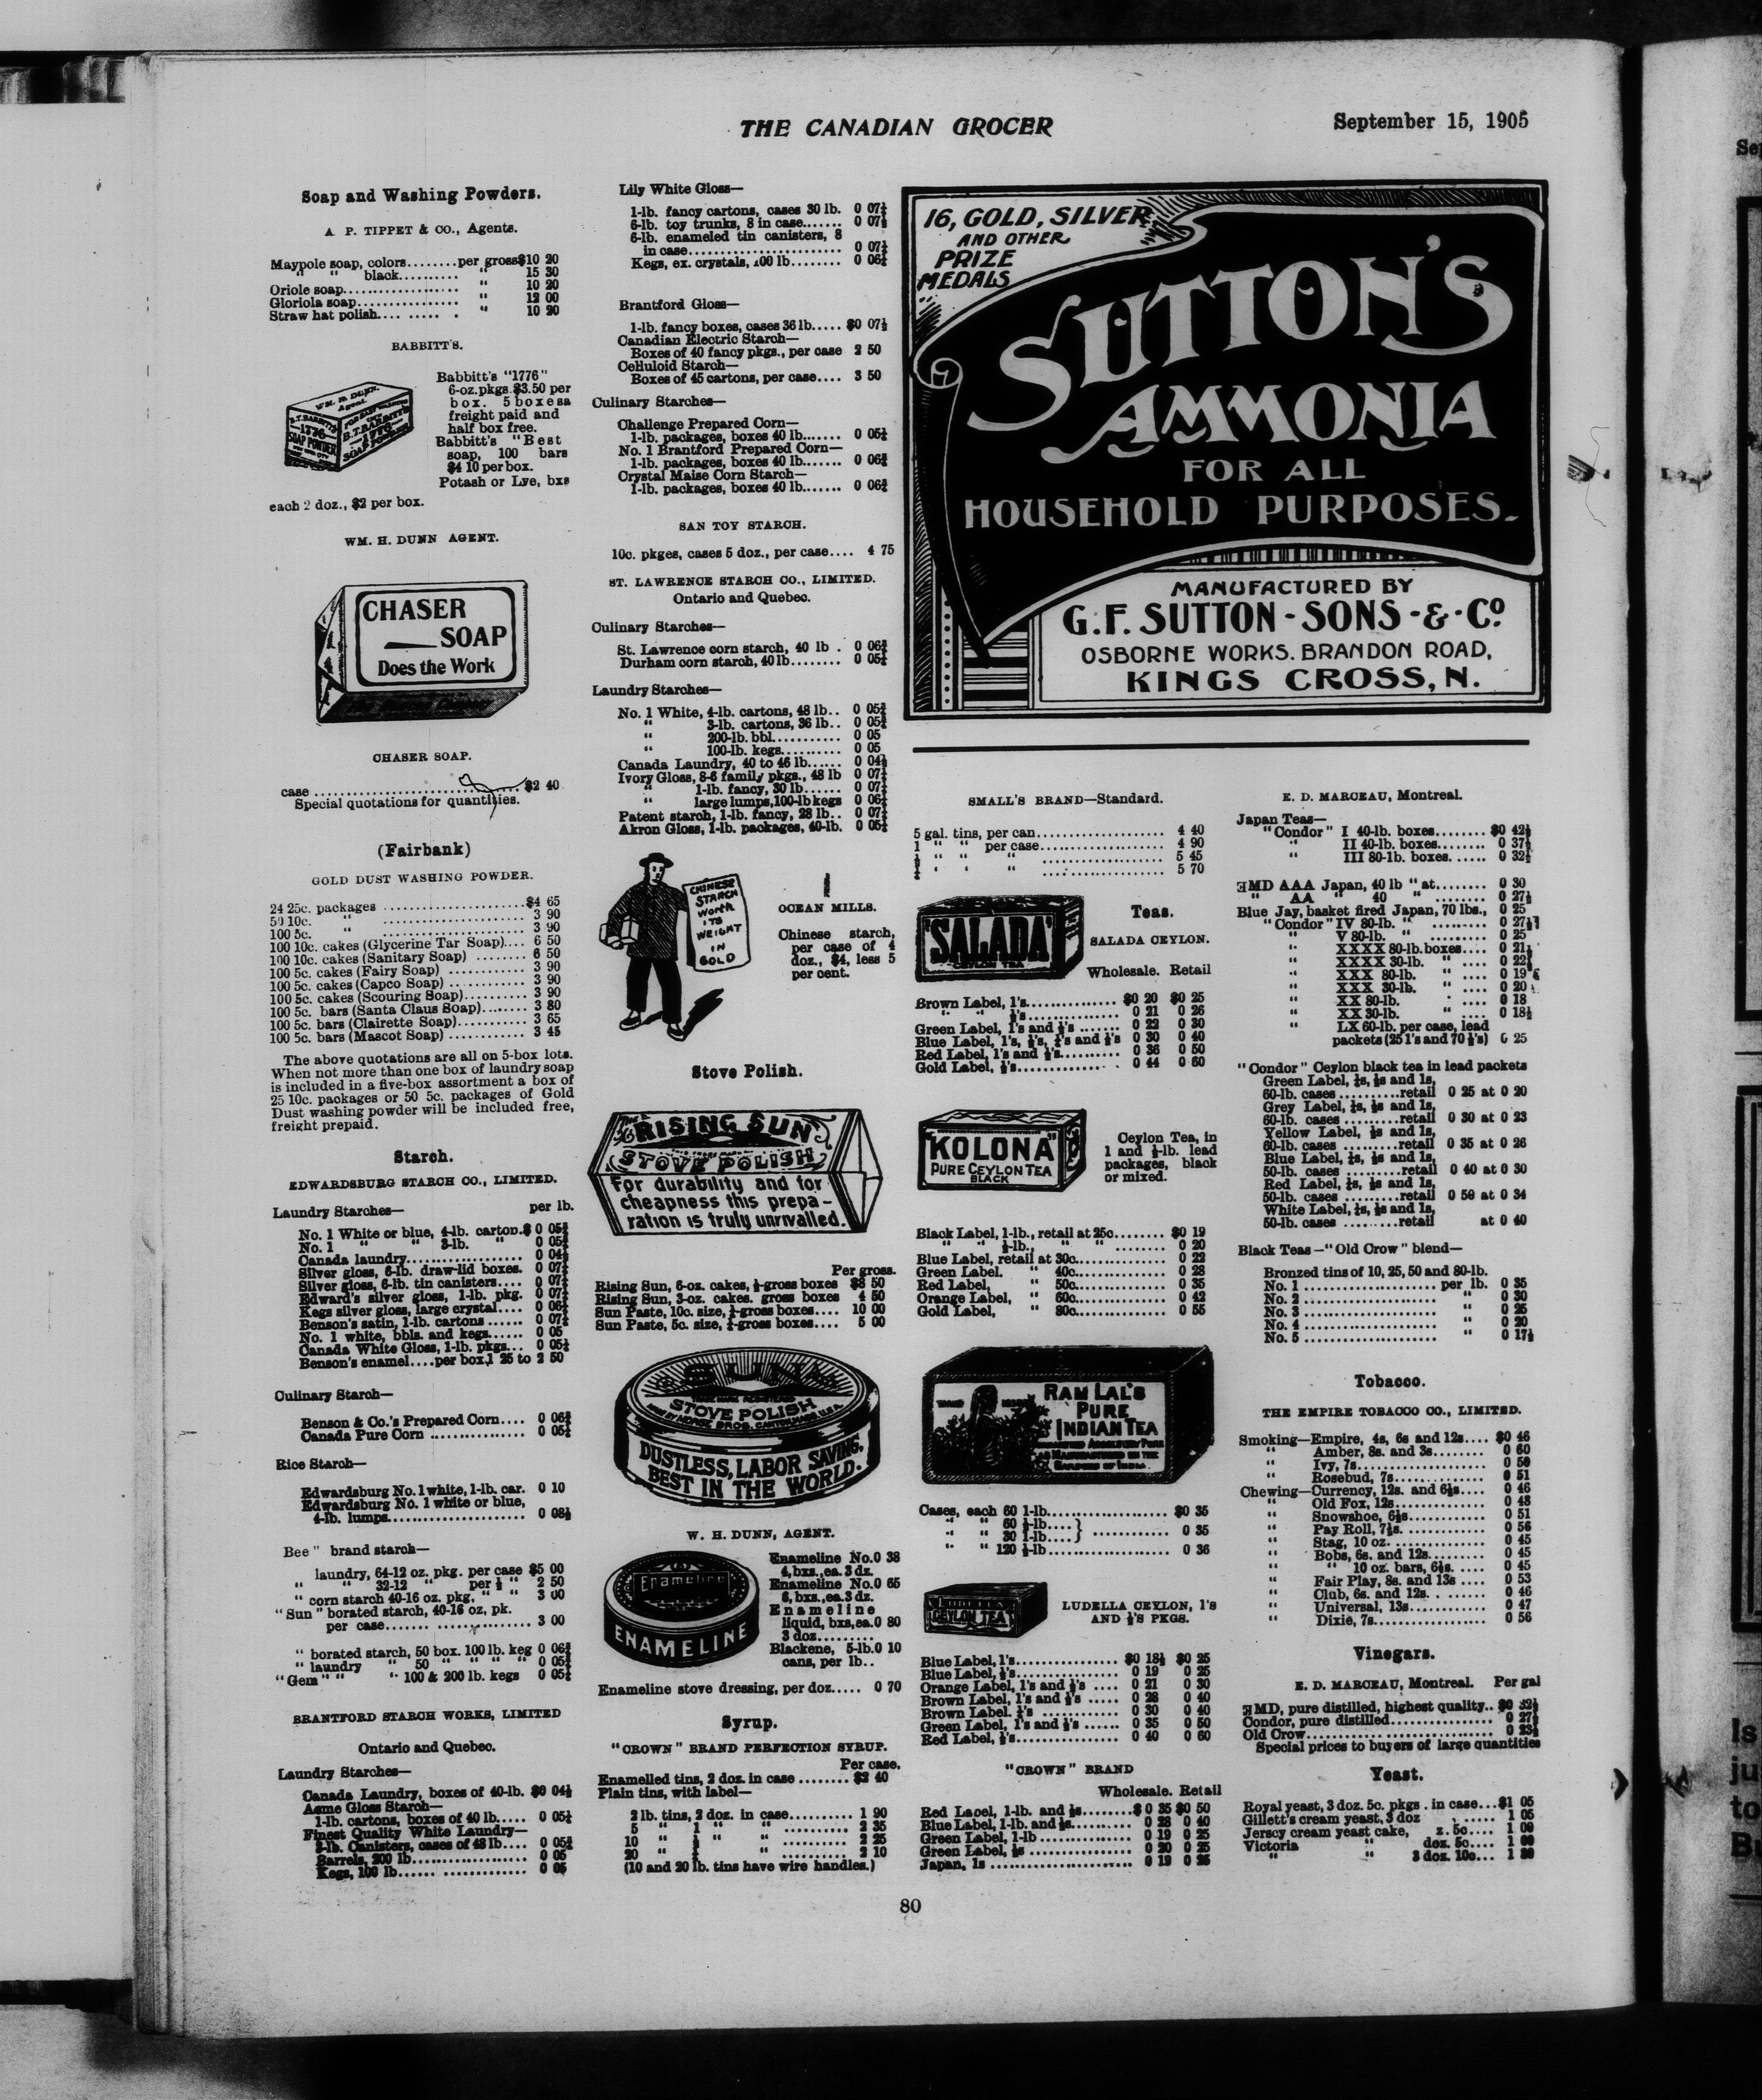 THE CANADIAN GROCER
September 15, 1905
Soap and Washing Powders.
A. P. TIPPET & CO., Agents.
Maypole soap, colors........per gross $10 20
" " black.......... " 15 30
Oriole soap................... " 10 20
Gloriola soap................. " 12 00
Straw hat polish.... ..... . " 10 20
BABBITT'S.
WM. H. DUNN
Agent.
B.T. BABBITT'S
1776
SOAP POWDER
Babbitt's "1776"
6-oz. pkgs. $3.50 per
box. 5 boxes
freight paid and
half box free.
Babbitt's "Best
soap, 100 bars
$4 10 per box.
Potash or Lye, bxs
each 2 doz., $2 per box.
WM. H. DUNN AGENT.
CHASER
SOAP
Does the Work
CHASER SOAP.
case .................................. $2 40
Special quotations for quantities.
(Fairbank)
GOLD DUST WASHING POWDER.
24 25c. packages .......................$4 65
50 10c. " ....................... 3 90
100 5c. " ....................... 3 90
100 10c. cakes (Glycerine Tar Soap).... 6 50
100 10c. cakes (Sanitary Soap) ........ 6 50
100 5c. cakes (Fairy Soap) ............ 3 90
100 5c. cakes (Capco Soap) ............ 3 90
100 5c. cakes (Scouring Soap).......... 3 90
100 5c. bars (Santa Claus Soap)........ 3 80
100 5c. bars (Clairette Soap)........... 3 65
100 5c. bars (Mascot Soap) ............ 3 45
The above quotations are all on 5-box lots.
When not more than one box of laundry soap
is included in a five-box assortment a box of
25 10c. packages or 50 5c. packages of Gold
Dust washing powder will be included free,
freight prepaid.
Starch.
EDWARDSBURG STARCH CO., LIMITED.
Laundry Starches— per lb.
No. 1 White or blue, 4-lb. carton.$ 0 05¾
No. 1 " " 3-lb. " 0 05¾
Canada laundry................... 0 04¾
Silver gloss, 6-lb. draw-lid boxes. 0 07¼
Silver gloss, 6-lb. tin canisters.... 0 07¼
Edward's silver gloss, 1-lb. pkg. 0 07¼
Kegs silver gloss, large crystal.... 0 06¼
Benson's satin, 1-lb. cartons ...... 0 07¼
No. 1 white, bbls. and kegs...... 0 05
Canada White Gloss, 1-lb. pkgs... 0 05¼
Benson's enamel....per box,1 25 to 2 50
Culinary Starch—
Benson & Co.'s Prepared Corn.... 0 06¾
Canada Pure Corn ................ 0 05¼
Rice Starch—
Edwardsburg No. 1 white, 1-lb. car. 0 10
Edwardsburg No. 1 white or blue,
4-lb. lumps....................... 0 08½
Bee" brand starch—
laundry, 64-12 oz. pkg. per case $5 00
" " 32-12 " per ½ " 2 50
" corn starch 40-16 oz. pkg. " " 3 00
"Sun" borated starch, 40-16 oz, pk.
per case....... .................. 3 00
" borated starch, 50 box. 100 lb. keg 0 06¾
" laundry " 50 " " " " 0 05¼
"Gem" " " 100 & 200 lb. kegs 0 05¼
BRANTFORD STARCH WORKS, LIMITED
Ontario and Quebec.
Laundry Starches—
Canada Laundry, boxes of 40-lb. $0 04½
Acme Gloss Starch—
1-lb. cartons, boxes of 40 lb..... 0 05¼
Finest Quality White Laundry—
3-lb. Canisters, cases of 48 lb.... 0 05¾
Barrels, 200 lb................... 0 05
Kegs, 100 lb...... .............. 0 05
Lily White Gloss—
1-lb. fancy cartons, cases 30 lb. 0 07¼
6-lb. toy trunks, 8 in case....... 0 07¼
6-lb. enameled tin canisters, 8
in case.......................... 0 07¼
Kegs, ex. crystals, 100 lb........ 0 06¼
Brantford Gloss—
1-lb. fancy boxes, cases 36 lb..... $0 07½
Canadian Electric Starch—
Boxes of 40 fancy pkgs., per case 2 50
Celluloid Starch—
Boxes of 45 cartons, per case.... 3 50
Culinary Starches—
Challenge Prepared Corn—
1-lb. packages, boxes 40 lb....... 0 05¼
No. 1 Brantford Prepared Corn—
1-lb. packages, boxes 40 lb....... 0 06¾
Crystal Maise Corn Starch—
1-lb. packages, boxes 40 lb....... 0 06¾
SAN TOY STARCH.
10c. pkges, cases 5 doz., per case.... 4 75
ST. LAWRENCE STARCH CO., LIMITED.
Ontario and Quebec.
Culinary Starches—
St. Lawrence corn starch, 40 lb . 0 06¾
Durham corn starch, 40 lb........ 0 05¼
Laundry Starches—
No. 1 White, 4-lb. cartons, 48 lb.. 0 05¾
" 3-lb. cartons, 36 lb.. 0 05¾
" 200-lb. bbl........... 0 05
" 100-lb. kegs.......... 0 05
Canada Laundry, 40 to 46 lb...... 0 04½
Ivory Gloss, 8-6 family pkgs., 48 lb 0 07¼
" 1-lb. fancy, 30 lb...... 0 07¼
" large lumps, 100-lb kegs 0 06¼
Patent starch, 1-lb. fancy, 28 lb.. 0 07¼
Akron Gloss, 1-lb. packages, 40-lb. 0 05¼
CHINESE
STARCH
Worth
ITS
WEIGHT
IN
GOLD
OCEAN MILLS.
Chinese starch,
per case of 4
doz., $4, less 5
per cent.
Stove Polish.
RISING SUN
STOVE POLISH
For durability and for
cheapness this prepa-
ration is truly unrivalled.
Per gross.
Rising Sun, 6-oz. cakes, ½-gross boxes $8 50
Rising Sun, 3-oz. cakes. gross boxes 4 50
Sun Paste, 10c. size, ¼-gross boxes.... 10 00
Sun Paste, 5c. size, ¼-gross boxes.... 5 00
SUN
STOVE POLISH
MORSE BROS.
DUSTLESS, LABOR SAVING,
BEST IN THE WORLD.
W. H. DUNN, AGENT.
Enameline
ENAMELINE
Enameline No. 0 38
4, bxs., ea. 3 dz.
Enameline No. 0 65
6, bxs., ea. 3 dz.
Enameline
liquid, bxs, ea. 0 80
3 doz.........
Blackene, 5-lb. 0 10
cans, per lb..
Enameline stove dressing, per doz..... 0 70
Syrup.
"CROWN" BRAND PERFECTION SYRUP.
Per case.
Enamelled tins, 2 doz. in case ........ $2 40
Plain tins, with label—
2 lb. tins, 2 doz. in case.......... 1 90
5 " 1 " " .......... 2 35
10 " ½ " " .......... 2 25
20 " ¼ " " .......... 2 10
(10 and 20 lb. tins have wire handles.)
16, GOLD, SILVER
AND OTHER
PRIZE
MEDALS
SUTTON'S
AMMONIA
FOR ALL
HOUSEHOLD PURPOSES.
MANUFACTURED BY
G. F. SUTTON - SONS - & - Co.
OSBORNE WORKS. BRANDON ROAD,
KINGS CROSS, N.
SMALL'S BRAND—Standard.
5 gal. tins, per can..................... 4 40
1 " " per case.................... 4 90
" " " .................... 5 45
" " " .................... 5 70
"SALADA"
CEYLON TEA
Teas.
SALADA CEYLON.
Wholesale. Retail
Brown Label, 1's................ $0 20 $0 25
" " ½'s................ 0 21 0 26
Green Label, 1's and ½'s ....... 0 22 0 30
Blue Label, 1's, ½'s, ¼'s and ⅛'s 0 30 0 40
Red Label, 1's and ½'s.......... 0 36 0 50
Gold Label, ½'s................. 0 44 0 60
KOLONA
PURE CEYLON TEA
BLACK
Ceylon Tea, in
1 and ½-lb. lead
packages, black
or mixed.
Black Label, 1-lb., retail at 25c........ $0 19
" " ½-lb., " " ......... 0 20
Blue Label, retail at 30c................ 0 22
Green Label. " 40c................ 0 28
Red Label, " 50c................ 0 35
Orange Label, " 60c................ 0 42
Gold Label, " 80c................ 0 55
RAM LAL'S
PURE
INDIAN TEA
GUARANTEED ABSOLUTELY PURE
MANUFACTURED ON THE
GARDENS OF INDIA.
Cases, each 60 1-lb...................... $0 35
" " 60 ½-lb....}
" " 30 1-lb....} ............. 0 35
" " 120 ½-lb...................... 0 36
LUDELLA
CEYLON TEA
LUDELLA CEYLON, 1'S
AND ½'S PKGS.
Blue Label, 1's.................. $0 18½ $0 25
Blue Label, ½'s.................. 0 19 0 25
Orange Label, 1's and ½'s .... 0 21 0 30
Brown Label, 1's and ½'s ..... 0 28 0 40
Brown Label. ¼'s ............. 0 30 0 40
Green Label, 1's and ½'s ...... 0 35 0 50
Red Label, ½'s.................. 0 40 0 60
"CROWN" BRAND
Wholesale. Retail
Red Label, 1-lb. and ½s........$ 0 35 $0 50
Blue Label, 1-lb. and ½s........ 0 28 0 40
Green Label, 1-lb ................ 0 19 0 25
Green Label, ½s ................. 0 20 0 25
Japan, 1s ........................ 0 19 0 25
E. D. MARCEAU, Montreal.
Japan Teas—
"Condor" I 40-lb. boxes........ $0 42½
" II 40-lb. boxes........ 0 37½
" III 80-lb. boxes....... 0 32½
EMD AAA Japan, 40 lb " at........ 0 30
" AA " 40 " ........ 0 27½
Blue Jay, basket fired Japan, 70 lbs., 0 25
"Condor" IV 80-lb. " ......... 0 27½
" V 80-lb. " ......... 0 25
" XXXX 80-lb. boxes.... 0 21½
" XXXX 30-lb. " .... 0 22½
" XXX 80-lb. " .... 0 19
" XXX 30-lb. " .... 0 20
" XX 80-lb. " .... 0 18
" XX 30-lb. " .... 0 18½
" LX 60-lb. per case, lead
packets (25 1's and 70 ½'s) 0 25
"Condor" Ceylon black tea in lead packets
Green Label, ¼s, ½s and 1s,
60-lb. cases ..........retail 0 25 at 0 20
Grey Label, ¼s, ½s and 1s,
60-lb. cases .........retail 0 30 at 0 23
Yellow Label, ½s and 1s,
60-lb. cases .........retail 0 35 at 0 26
Blue Label, ¼s, ½s and 1s,
50-lb. cases .........retail 0 40 at 0 30
Red Label, ¼s, ½s and 1s,
50-lb. cases .........retail 0 50 at 0 34
White Label, ¼s, ½s and 1s,
50-lb. cases .........retail at 0 40
Black Teas—"Old Crow" blend—
Bronzed tins of 10, 25, 50 and 80-lb.
No. 1 ..................... per lb. 0 35
No. 2 ..................... " 0 30
No. 3 ..................... " 0 25
No. 4 ..................... " 0 20
No. 5 ..................... " 0 17½
Tobacco.
THE EMPIRE TOBACCO CO., LIMITED.
Smoking—Empire, 4s, 6s and 12s.... $0 46
" Amber, 8s. and 3s........ 0 60
" Ivy, 7s.................... 0 50
" Rosebud, 7s.............. 0 51
Chewing—Currency, 12s. and 6½s.... 0 46
" Old Fox, 12s.............. 0 48
" Snowshoe, 6½s............ 0 51
" Pay Roll, 7½s. ............ 0 56
" Stag, 10 oz. .............. 0 45
" Bobs, 6s. and 12s......... 0 45
" " 10 oz. bars, 6½s. ..... 0 45
" Fair Play, 8s. and 13s .... 0 53
" Club, 6s. and 12s. . ...... 0 46
" Universal, 13s............ 0 47
" Dixie, 7s.................. 0 56
Vinegars.
E. D. MARCEAU, Montreal. Per gal
EMD, pure distilled, highest quality.. $0 32½
Condor, pure distilled............... 0 27½
Old Crow.............................. 0 23½
Special prices to buyers of large quantities
Yeast.
Royal yeast, 3 doz. 5c. pkgs. in case...$1 05
Gillett's cream yeast, 3 doz ....... 1 05
Jersey cream yeast cake, z. 5c.... 1 00
Victoria " doz. 5c.... 1 00
" " 3 doz. 10c... 1 80
80